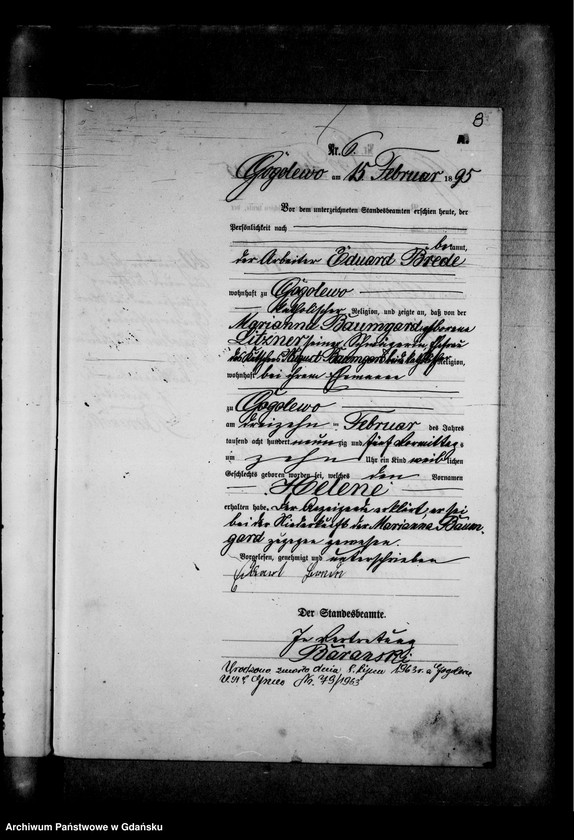 8
A.
Nr. 6.
Gogolewo am 15 Februar 1895
Vor dem unterzeichneten Standesbeamten erschien heute, der
Persönlichkeit nach
bekannt,
der Arbeiter Eduard Brede
wohnhaft zu Gogolewo
katholischer Religion, und zeigte an, daß von der
Marianna Baumgard geborene
Litzner seiner Schwägerin, Ehefrau
des August Baumgard katholischer Religion,
wohnhaft bei ihrem Ehemann
zu Gogolewo
am dreizehn ten Februar des Jahres
tausend acht hundert neunzig und fünf Vormittags
um zehn Uhr ein Kind weiblichen
Geschlechts geboren worden sei, welches den Vornamen
Helene
erhalten habe. Der Anzeigende erklärt, er sei
bei der Niederkunft der Marianna Baum-
gard zugegen gewesen.
Vorgelesen, genehmigt und unterschrieben
Der Standesbeamte.
In Vertretung
Baranski
zmarła dnia 8. lipca 1963 r. w
Nr. 49/1963
Archiwum Państwowe w Gdańsku